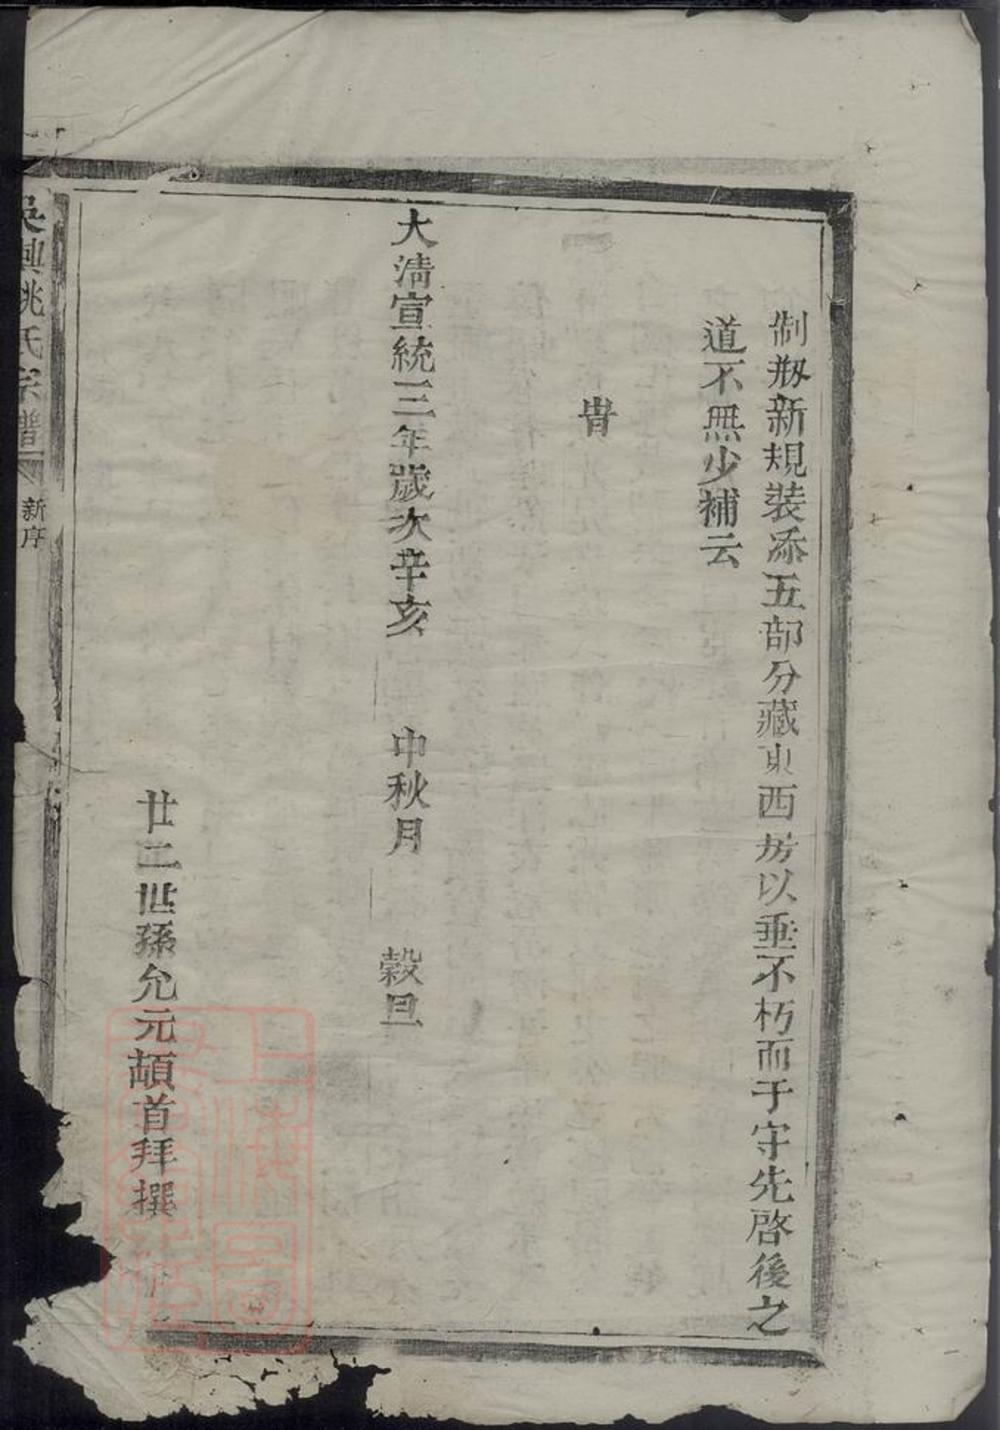 制剙新規裝添五部分藏東西房以垂不朽而于守先啓後之
道不無少補云
旹
大清宣統三年歲次辛亥 中秋月 榖旦
廿二世孫允元頓首拜撰
吳興姚氏宗譜 新序